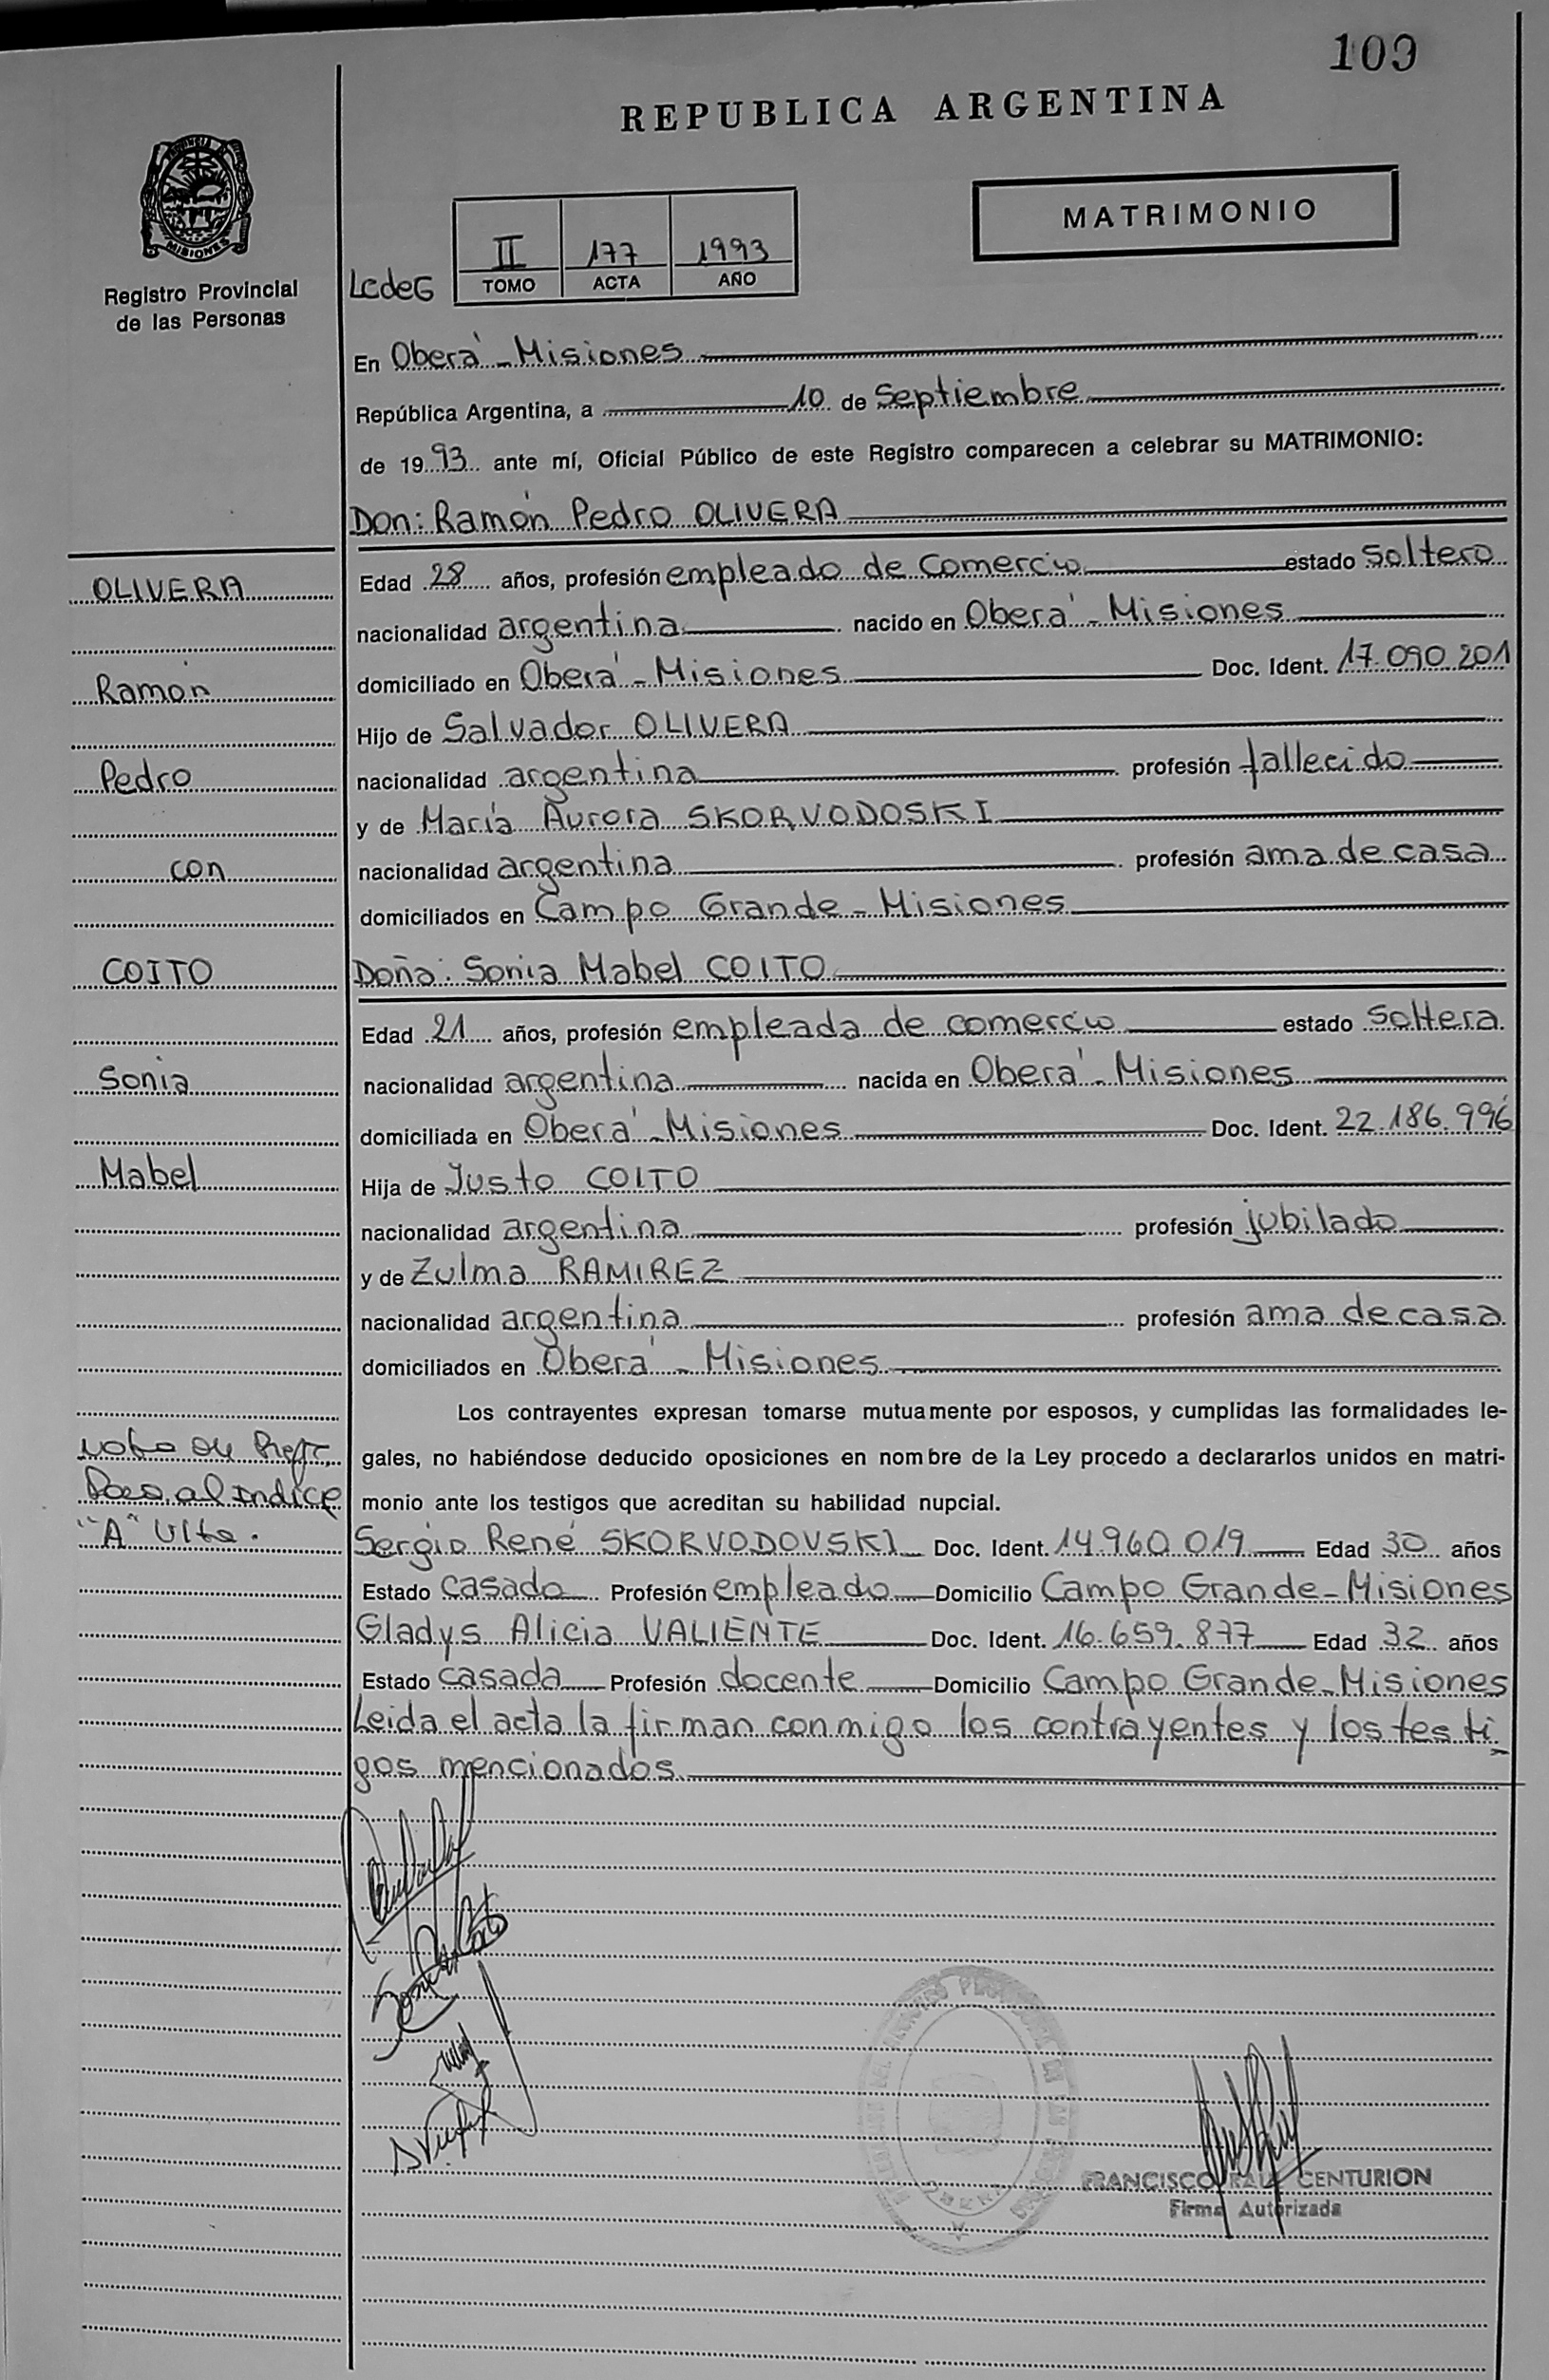 109
REPUBLICA ARGENTINA
MISIONES
Registro Provincial
de las Personas
MATRIMONIO
LcdeG
II 177 1993
TOMO ACTA AÑO
En Oberá - Misiones
República Argentina, a 10 de Septiembre
de 1993 ante mí, Oficial Público de este Registro comparecen a celebrar su MATRIMONIO:
Don: Ramón Pedro OLIVERA
OLIVERA
Ramón
Pedro
con
COITO
Sonia
Mabel
Edad 28 años, profesión empleado de comercio estado soltero
nacionalidad argentina nacido en Oberá - Misiones
domiciliado en Oberá - Misiones Doc. Ident. 17.090.201
Hijo de Salvador OLIVERA
nacionalidad argentina profesión fallecido
y de María Aurora SKORVODOSKI
nacionalidad argentina profesión ama de casa
domiciliados en Campo Grande - Misiones
Doña: Sonia Mabel COITO
Edad 21 años, profesión empleada de comercio estado soltera
nacionalidad argentina nacida en Oberá - Misiones
domiciliada en Oberá - Misiones Doc. Ident. 22.186.996
Hija de Justo COITO
nacionalidad argentina profesión jubilado
y de Zulma RAMIREZ
nacionalidad argentina profesión ama de casa
domiciliados en Oberá - Misiones
Los contrayentes expresan tomarse mutuamente por esposos, y cumplidas las formalidades le-
gales, no habiéndose deducido oposiciones en nombre de la Ley procedo a declararlos unidos en matri-
monio ante los testigos que acreditan su habilidad nupcial.
al Indice
"A" Ulta.
Sergio René SKORVODOVSKI Doc. Ident. 14.960.019 Edad 30 años
Estado casado Profesión empleado Domicilio Campo Grande - Misiones
Gladys Alicia VALIENTE Doc. Ident. 16.659.877 Edad 32 años
Estado casada Profesión docente Domicilio Campo Grande - Misiones
Leida el acta la firman conmigo los contrayentes y los testi-
gos mencionados.
OBERA
FRANCISCO RAUL CENTURION
Firma Autorizada